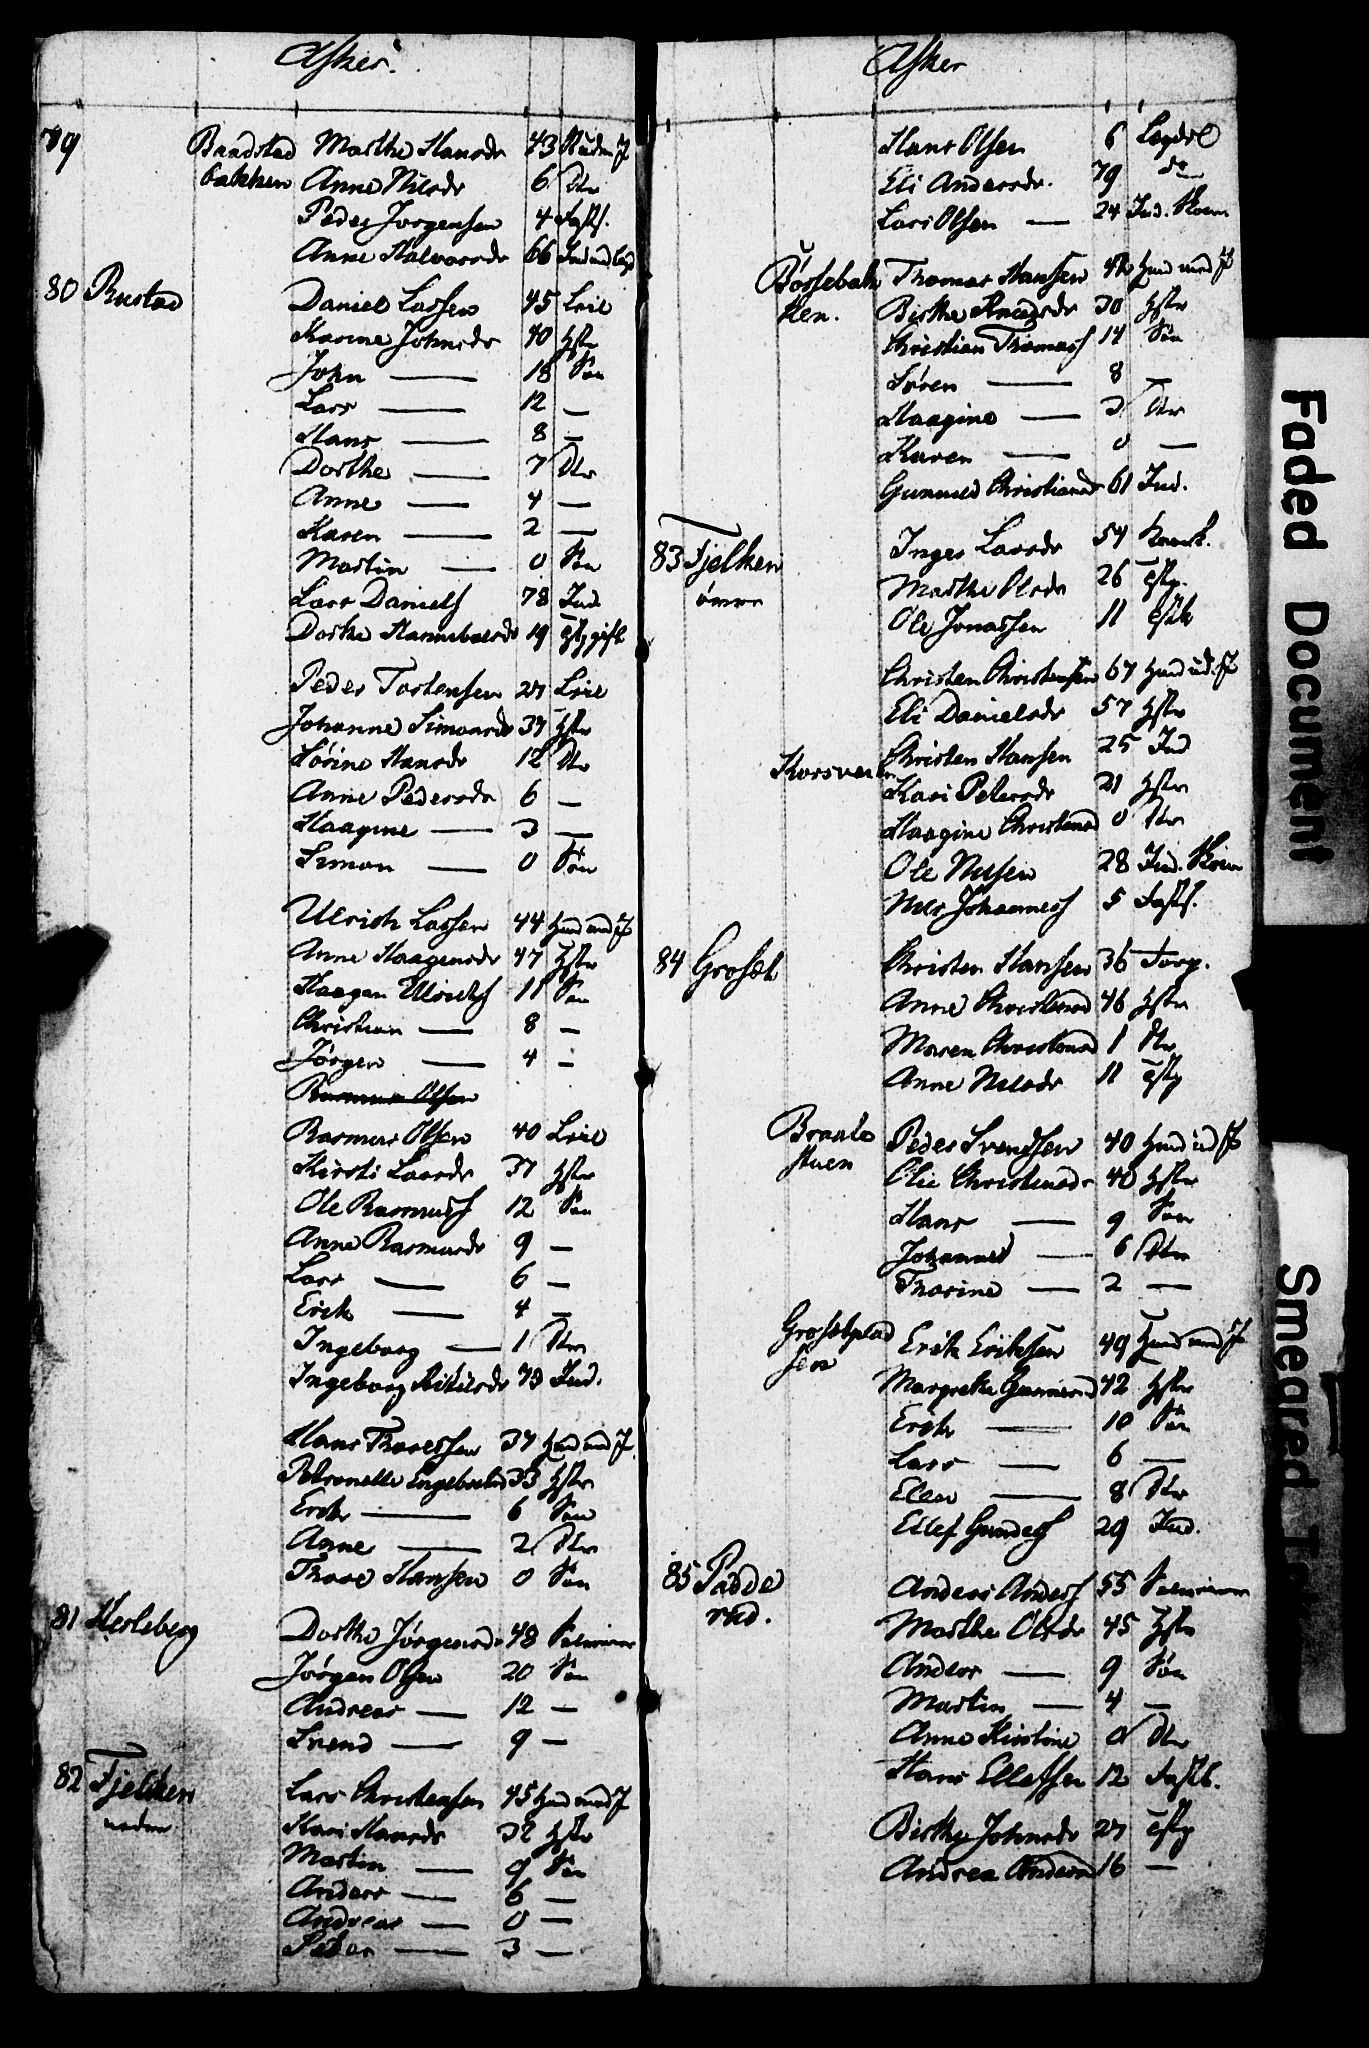 Asker.
79 Baadstad Marthe Hansdr 43
bakken Anne Nilsdr 6 Dtr
Peder Jørgensen 4 Fosts.
Anne Halvorsdr 66
80 Rustad Daniel Larsen 45 Leil
Karine Johnsdr 40 Hstr
John — 18 Søn
Lars — 12 —
Hans — 8 —
Dorthe — 7 Dtr
Anne — 4 —
Karen — 2 —
Martin — 0 Søn
Lars Daniels 78 Ind
Dorthe 19
Peder Torstensen 27 Leil
Johanne Simonsdr 37 Hstr
Sørine Hansdr 12 Dtr
Anne Pedersdr 6 —
Haagine — 3 —
Simon — 0 Søn
Ulrich Larsen 44 Husmd med J
Anne Haagensdr 47 Hstr
Haagen Ulrichs 11 Søn
Christian — 8 —
Jørgen — 4 —
Rasmus Olsen
Rasmus Olsen 40 Leil
Kirsti Larsdr 37 Hstr
Ole Rasmuss 12 Søn
Anne Rasmusdr 9 —
Lars — 6 —
Erik — 4 —
Ingeborg — 1 Dtr
Ingeborg 73 Ind.
Hans Thoresen 37 Husmd med J
Petronelle Engebretsd 33 Hstr
Erik — 6 Søn
Anne — 2 Dtr
Thore Hansen 0 Søn
81 Herleberg Dorthe Jørgensdr 48
Jørgen Olsen 20 Søn
Andreas — 12 —
Svend — 9 —
82 Fjelken Lars Christensen 45 Husmd med J
nedre Kari Hansdr 32 Hstr
Martin — 9 Søn
Anders — 6 —
Andreas — 0 —
Peder — 3 —
Asker
Hans Olsen 6 Lægdsl
Eli Andersdr. 79 do
Lars Olsen — 24 Ind. Skom
Børsebak Thomas Hansen 42 Husmd med J
ken. Birthe Knudsdr 30 Hstr
Christian Thomass 14 Søn
Søren — 8 —
Haagine — 3 Dtr
Karen — 0 —
Gunnild Christiansd 61 Ind.
83 Fjelken Inger Larsdr 54
øvre Marthe Olsdr 26 Tstp.
Ole Jonassen 11 Tstk
Christen Christensen 67 Husmd ud. J
Eli Danielsdr 57 Hstr
Korsveien Christen Hansen 25 Ind
Kari Pedersdr 21 Hstr
Haagine Christensd 0 Dtr
Ole Nilsen 28 Ind. Skom
Nils Johanness 5 Fosts.
84 Groset Christen Hansen 36 Forp.
Anne Christensd 46 Hstr
Maren Christensd 1 Dtr
Anne Nilsdr 11 Tstp
Braate Peder Svendsen 40 Husmd ud J
stuen Olie Christensdr 40 Hstr
Hans — 9 Søn
Johannes — 6
Thorine — 2 —
Grosetplad Erik Eriksen 49 Husmd med J
sen Margrethe Gunnersd 42 Hstr
Erik — 10 Søn
Lars — 6 —
Elen — 8 Dtr
Ellef Gunders 29 Ind.
85 Padde Anders Anders 55 Selveier
rud. Marthe Olsdr 45 Hstr
Anders — 9 Søn
Martin — 4 —
Anne Kirstine 0 Dtr
Hans Ellefsen 12 Fostb.
Birthe Johnsdr 27 Tstp
Andrea Andersd 16 —
Faded Document
Smeared